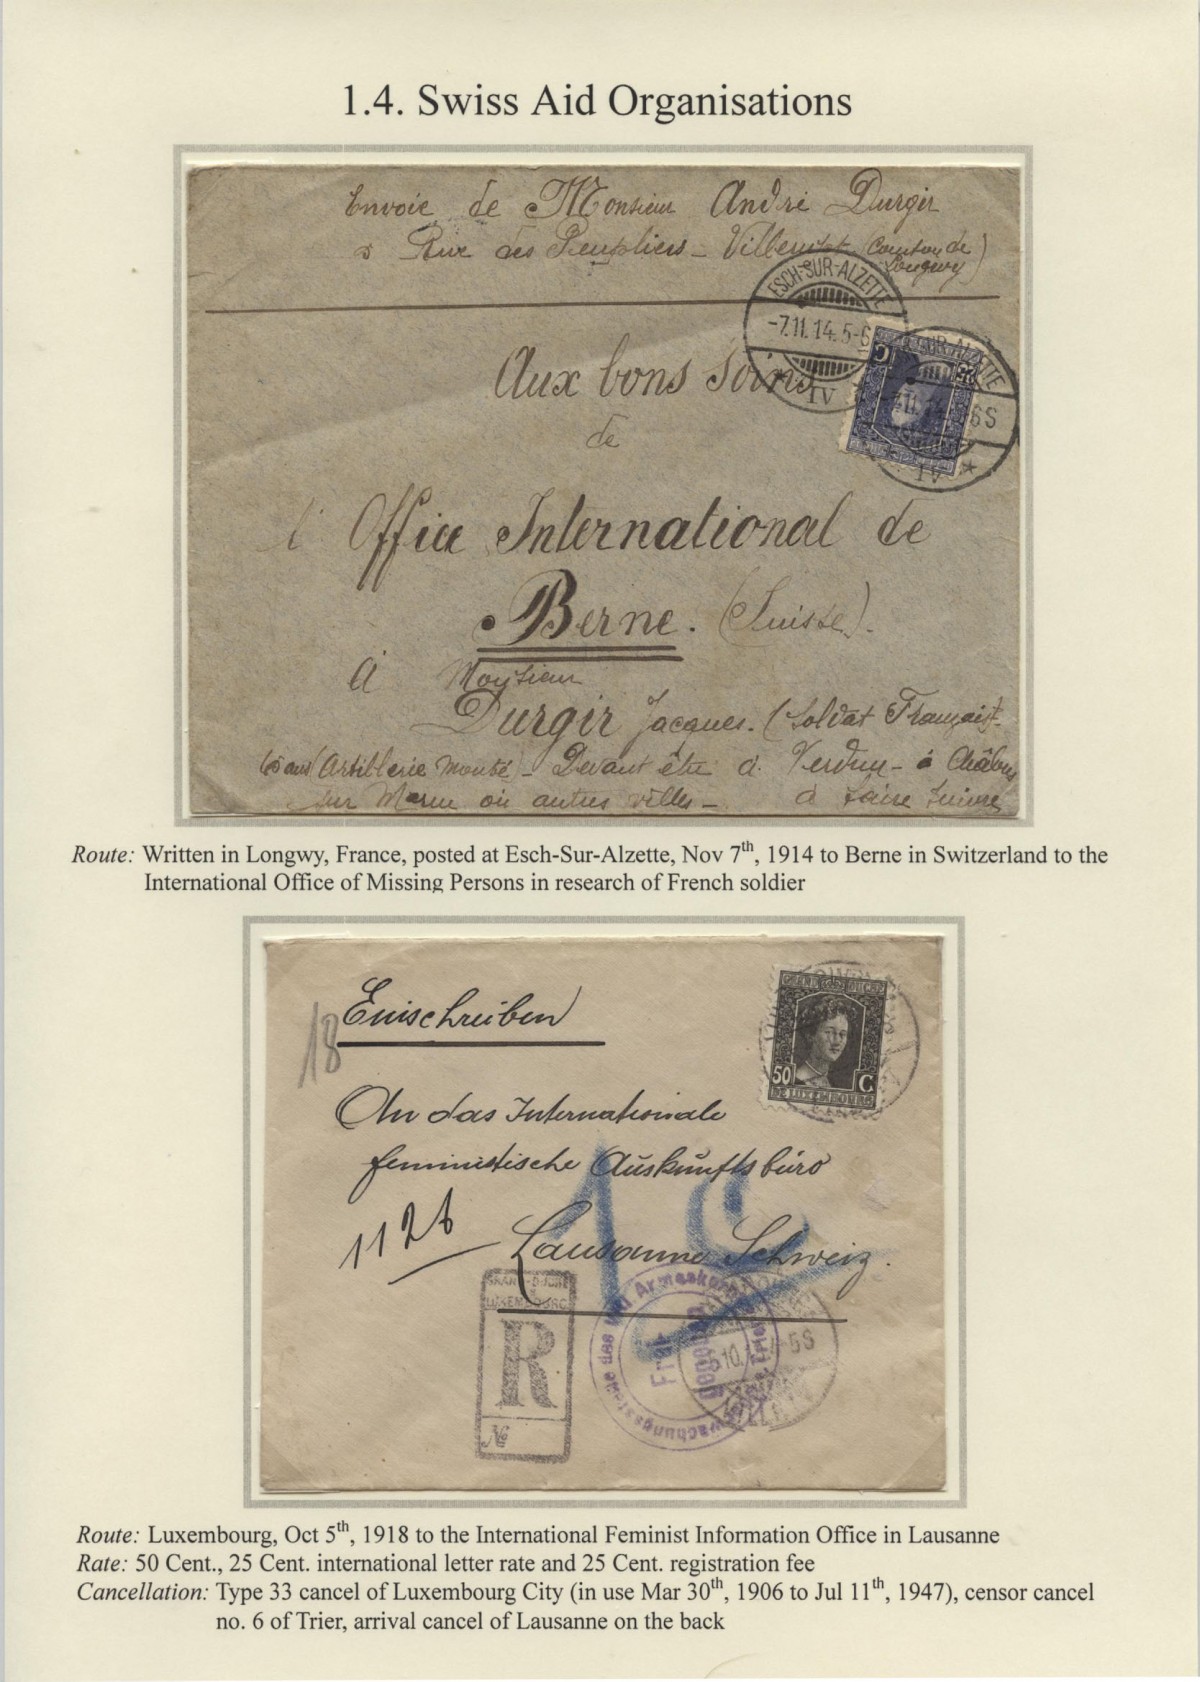 1.4. Swiss Aid Organisations
Envoie de Monsieur André Durgir
Rue des Peupliers - (
Longwy)
ESCH-SUR-ALZETTE
-7.11.14. 5-6
IV
SUR-ALZETTE
6S
IV
C
Aux bons soins
de
l'Office International de
Berne. (Suisse).
à Monsieur
Durgir Jacques. (Soldat Français)-
(Artillerie Monté) - Devant être à Verdun - à
sur Marne ou autres villes - à faire suivre
Route: Written in Longwy, France, posted at Esch-Sur-Alzette, Nov 7th, 1914 to Berne in Switzerland to the
International Office of Missing Persons in research of French soldier
Einschreiben
18
50 C
DE LUXEMBOURG
An das Internationale
feministische Auskunftsbüro
1126
Lausanne Schweiz.
LUXEMBOURG
R
№
10.
5S
Route: Luxembourg, Oct 5th, 1918 to the International Feminist Information Office in Lausanne
Rate: 50 Cent., 25 Cent. international letter rate and 25 Cent. registration fee
Cancellation: Type 33 cancel of Luxembourg City (in use Mar 30th, 1906 to Jul 11th, 1947), censor cancel
no. 6 of Trier, arrival cancel of Lausanne on the back